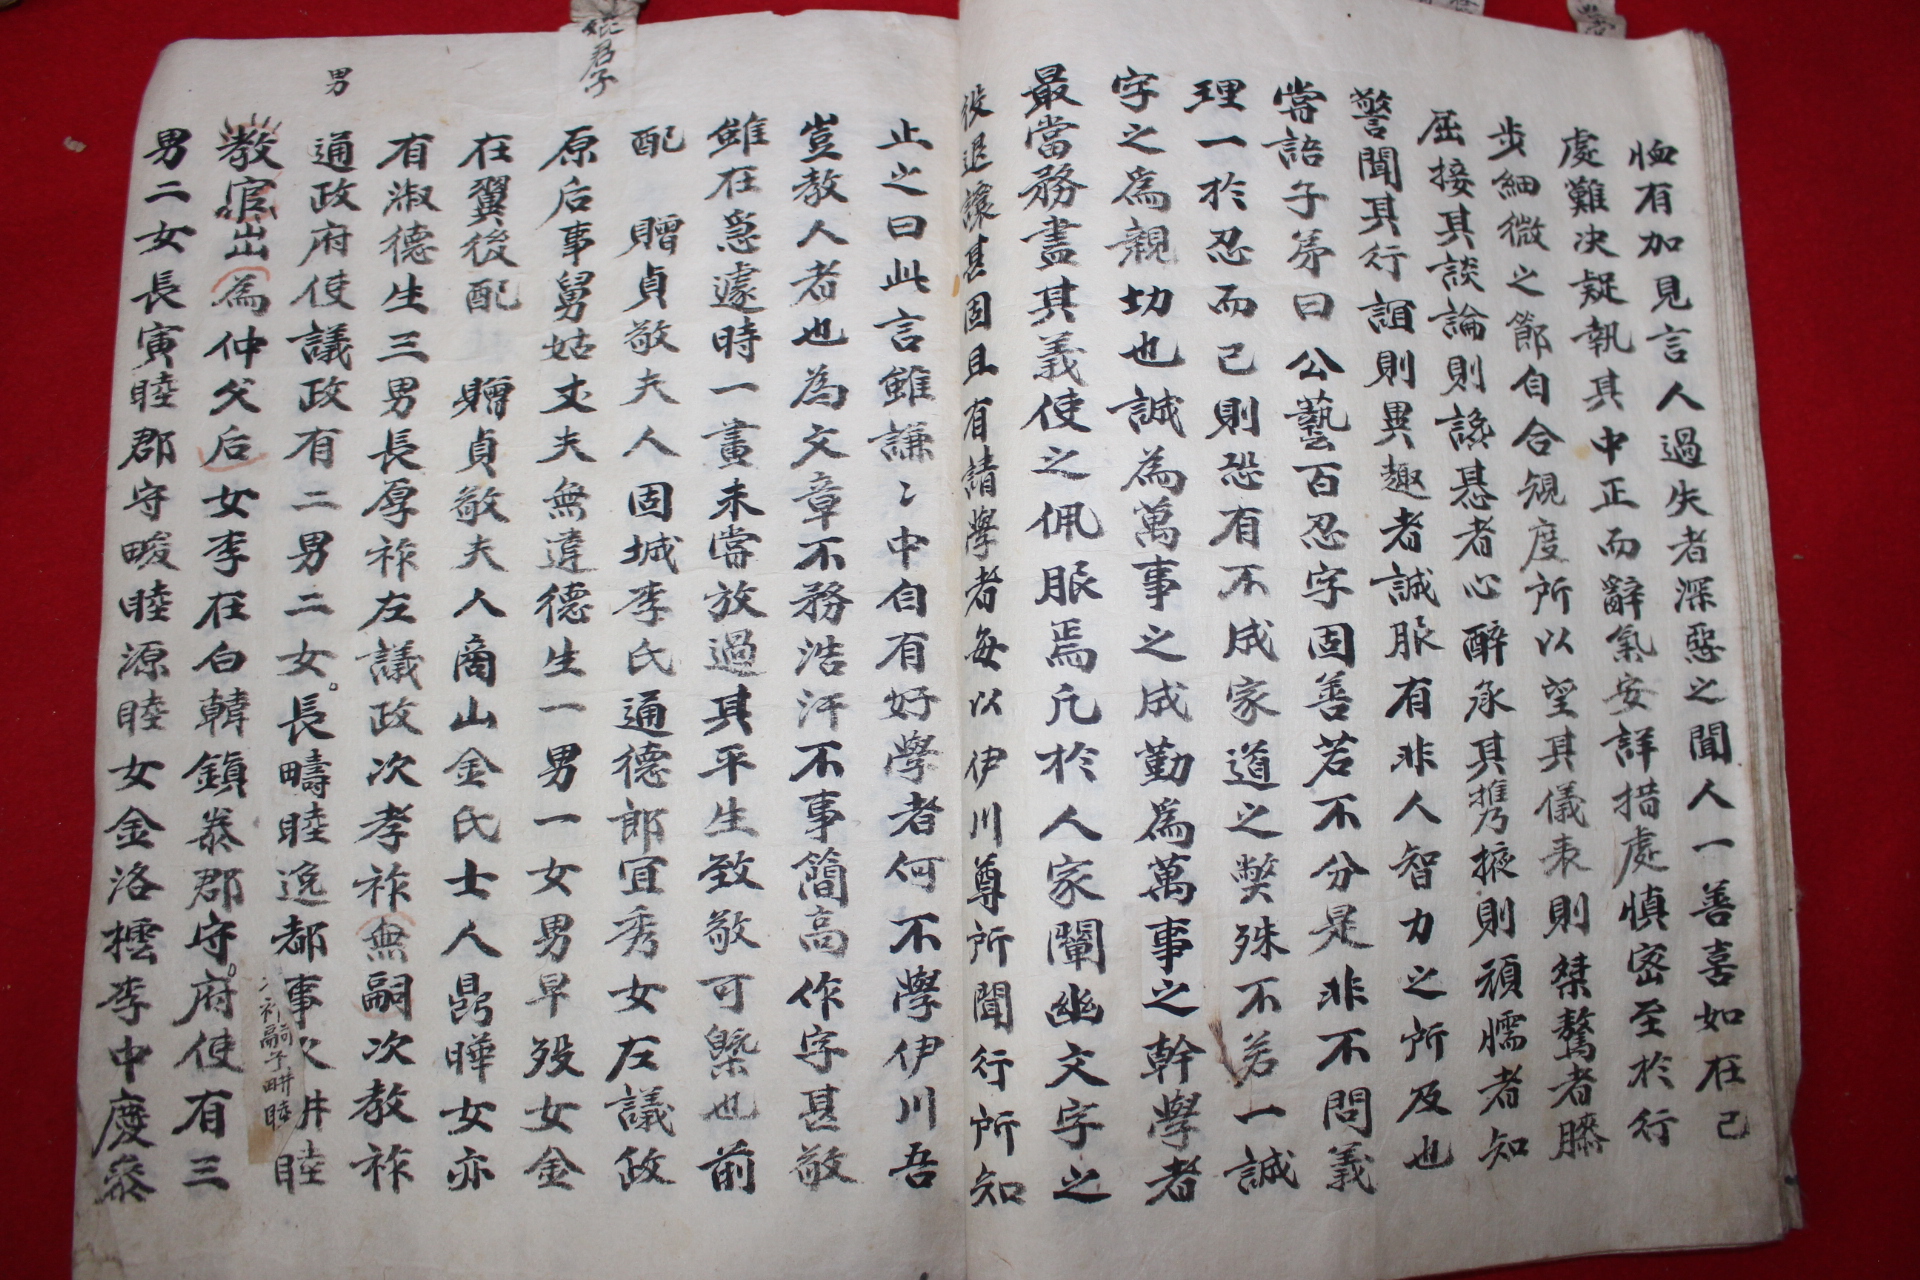 恤有加見言人過失者深惡之聞人一善喜如在己
處難决疑執其中正而辭氣安詳措處慎密至於行
步細微之節自合䂓度所以望其儀表則桀驁者
屈接其談論則諺者心醉承其携掖則頑懦者知
警聞其行誼則異趣者誠服有非人智力之所及也
嘗語子弟曰公藝百忍字固善若不分是非不問義
理一於忍而已則恐有不成家道之獘殊不若一誠
字之爲親切也誠為萬事之成勤爲萬事之幹學者
最當務盡其義使之佩服焉凡於人家闡幽文字之
役退讓甚固且有請學者每以伊川尊所聞行所知
止之曰此言雖謙〻中自有好學者何不學伊川吾
豈教人者也為文章不務浩汗不事簡高作字甚敬
雖在急遽時一畫未嘗放過其平生致敬可槩也前
配 贈貞敬夫人固城李氏通德郎宜秀女左議政
原后事舅姑丈夫無違德生一男一女男早殁女金
在翼後配 贈貞敬夫人商山金氏士人鼎曄女亦
有淑德生三男長厚祚左議政次孝祚無嗣次教祚
通政府使議政有二男二女長疇睦逸都事次畊睦
祚嗣子畊睦
教官出為仲父后女李在白韓鎮泰郡守府使有三
男二女長寅睦郡守畯睦源睦女金洛橒李中慶泰
男